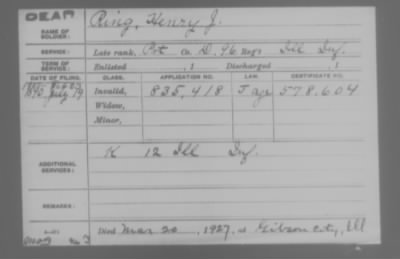 DEAD
NAME OF SOLDIER: Ring, Henry J.
SERVICE: Late rank, Pvt Co. D, 96 Reg't Ill Inf.
TERM OF SERVICE: Enlisted , 1 Discharged , 1
DATE OF FILING. CLASS. APPLICATION NO. LAW. CERTIFICATE NO.
July 19 Invalid, 835,418 J age 578,604
Widow,
Minor,
ADDITIONAL SERVICES: K 12 Ill Inf.
REMARKS:
Died Mar 20, 1927, at Gibson City, Ill